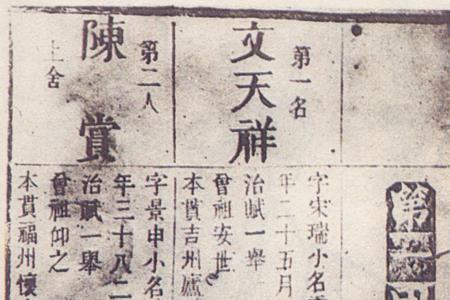 第
第一名
文天祥
字宋瑞小名
年二十五月
治賦一舉
曾祖安世
本貫吉州廬
第二人
陳賞
上舍
字景申小名
年三十八二
治賦一舉
曾祖仰之
本貫福州懷